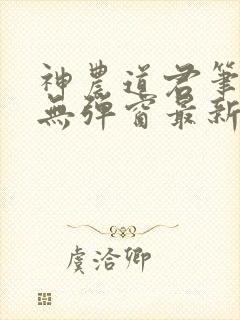 神農道君筆
無彈窗最新
虞洽卿